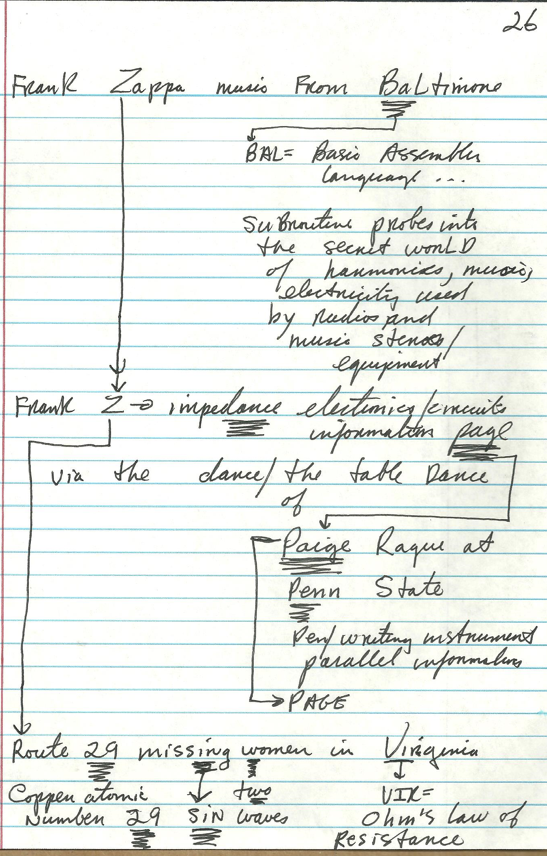 26
Frank Zappa music From Baltimore
BAL= Basic Assembler
Language ...
Subroutine probes into
the secret worLD
of harmonics, music,
electricity used
by Radios and
music stereos/
equipment
Frank Z→ impedance electronics/circuits
information page
via the dance/the table Dance
of
Paige Raque at
Penn State
Pen/writing instrument
parallel information
→PAGE
Route 29 missing women in Virginia
Copper atomic two VIR=
Number 29 SiN waves Ohm's law of
Resistance